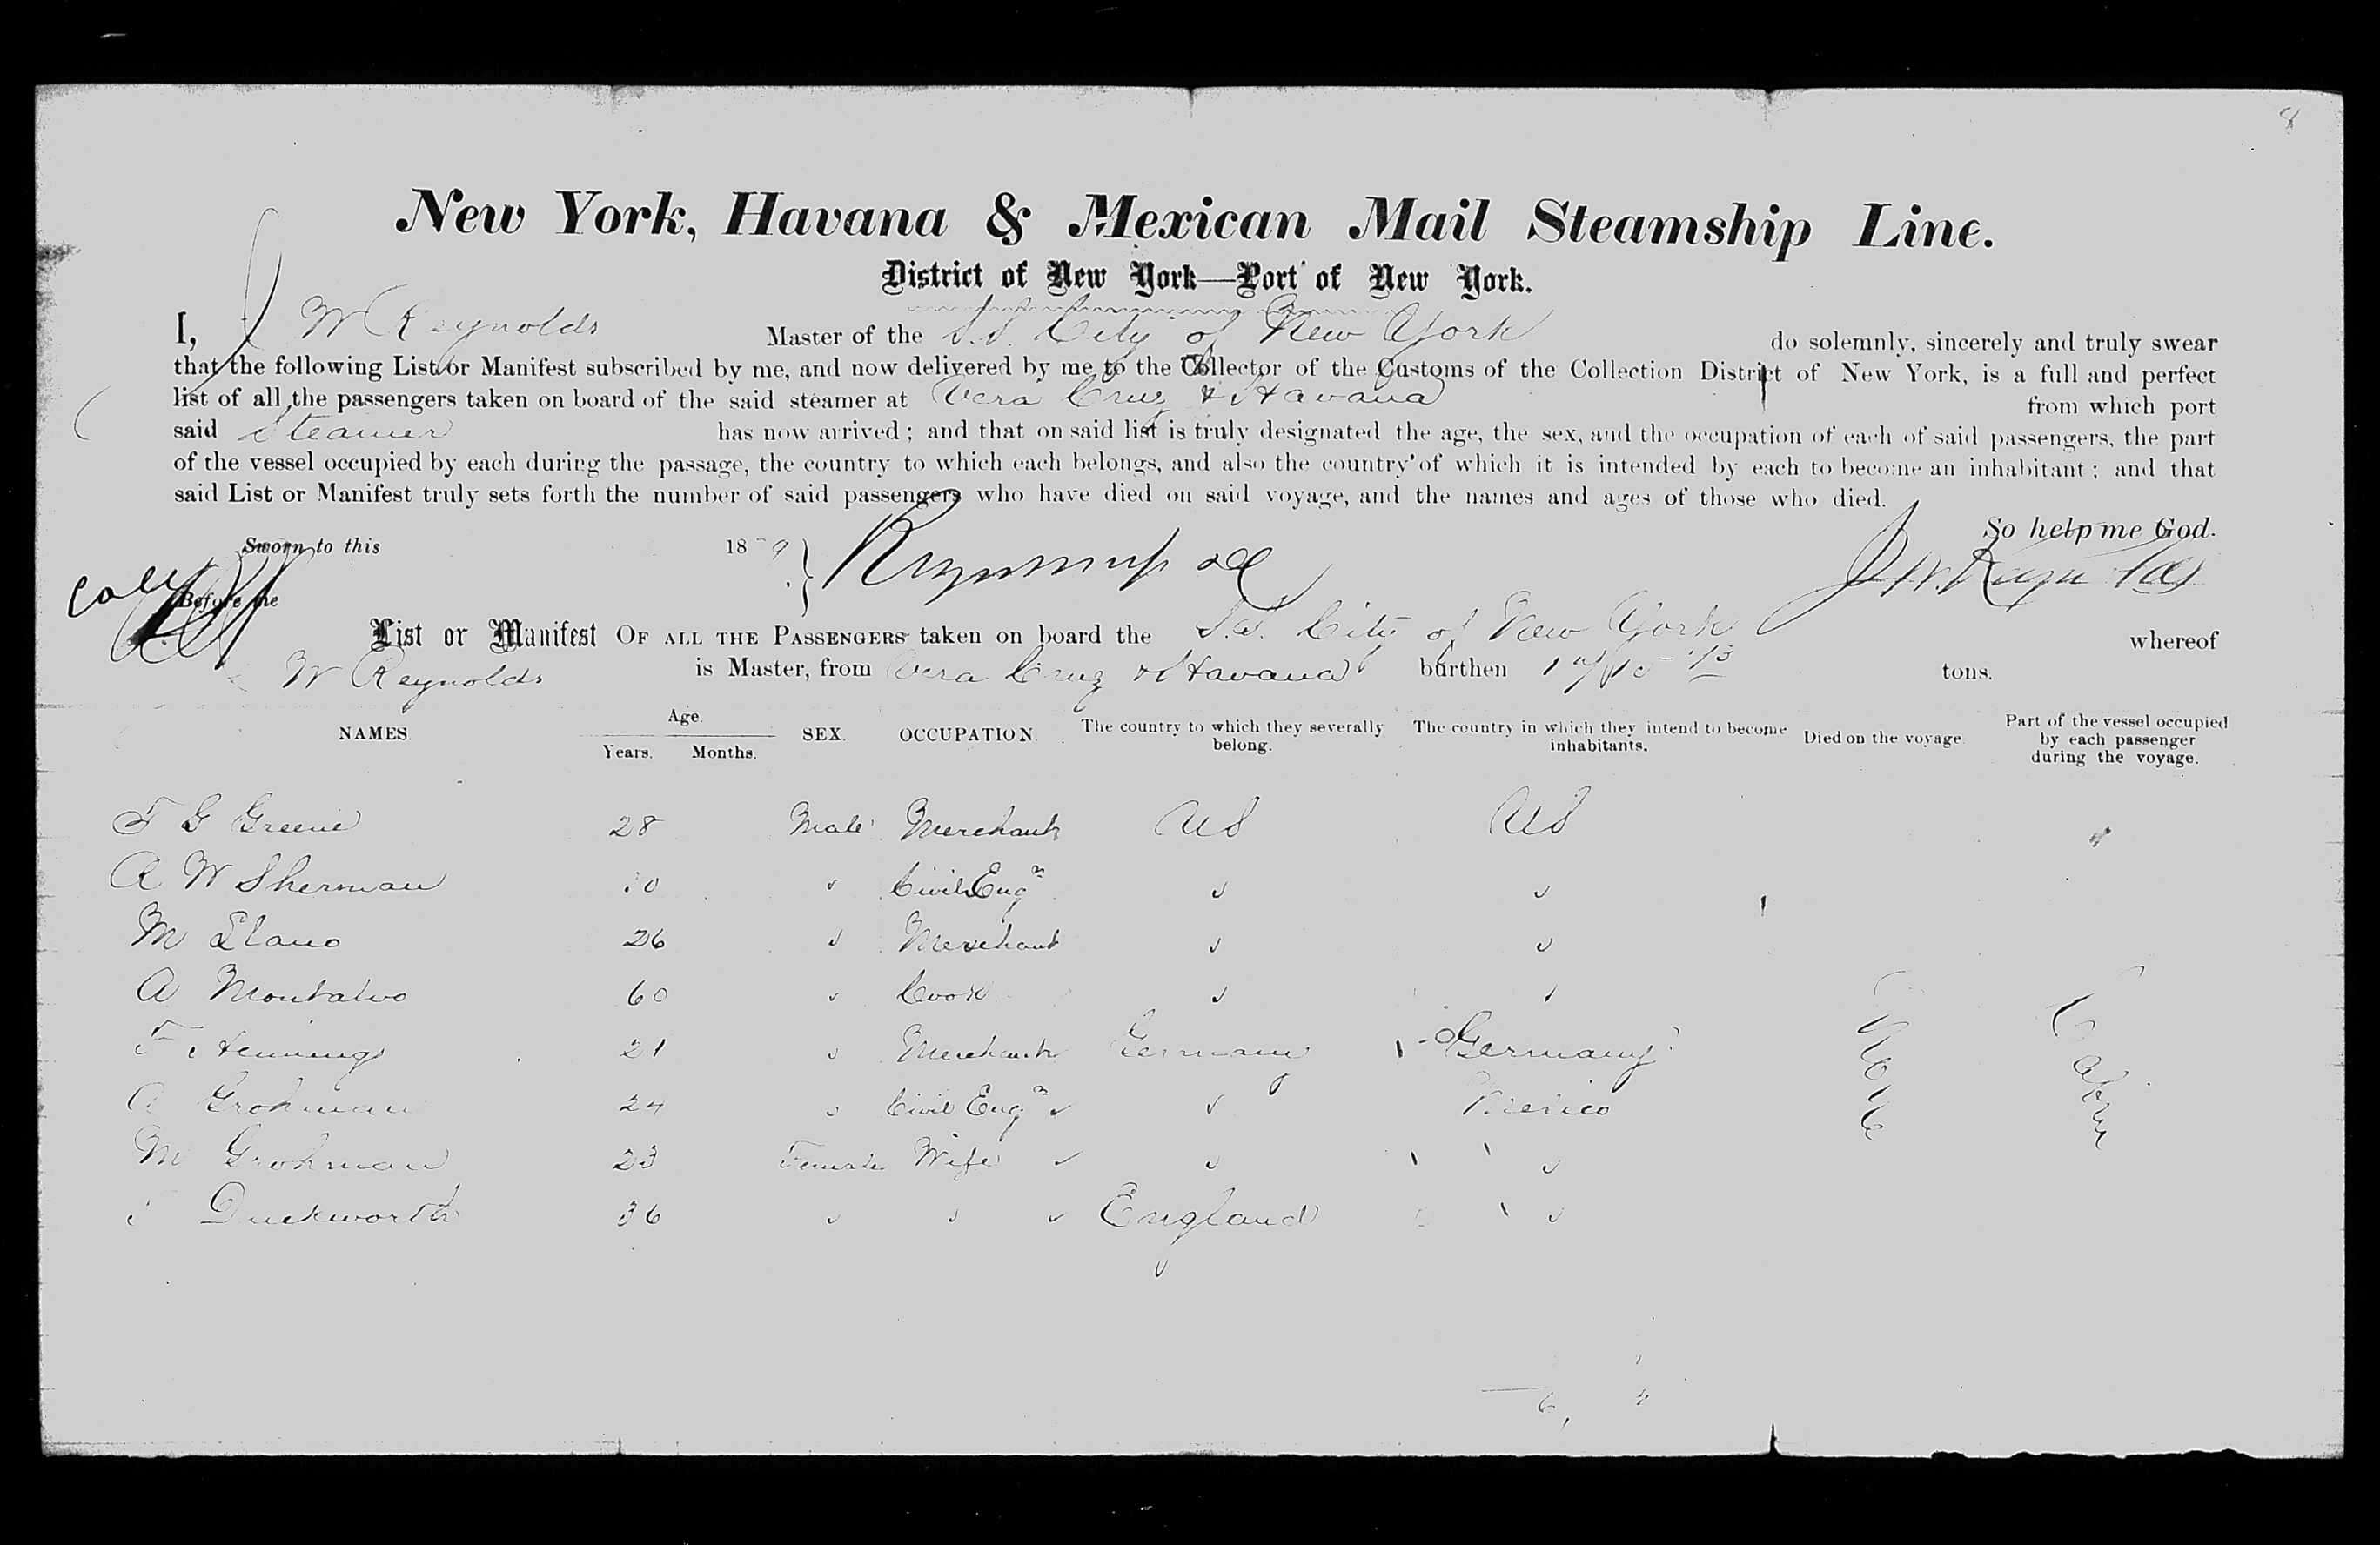 8
New York, Havana & Mexican Mail Steamship Line.
District of New York—Port of New York.
I, J W Reynolds Master of the S.S. City of New York do solemnly, sincerely and truly swear
that the following List or Manifest subscribed by me, and now delivered by me to the Collector of the Customs of the Collection District of New York, is a full and perfect
list of all the passengers taken on board of the said steamer at Vera Cruz & Havana from which port
said Steamer has now arrived; and that on said list is truly designated the age, the sex, and the occupation of each of said passengers, the part
of the vessel occupied by each during the passage, the country to which each belongs, and also the country of which it is intended by each to become an inhabitant; and that
said List or Manifest truly sets forth the number of said passengers who have died on said voyage, and the names and ages of those who died.
So help me God.
Sworn to this 1879 J W Reynolds
Before me
List or Manifest OF ALL THE PASSENGERS taken on board the S.S. City of New York whereof
W Reynolds is Master, from Vera Cruz & Havana burthen tons.
NAMES. Age. Years. Months. SEX. OCCUPATION. The country to which they severally belong. The country in which they intend to become inhabitants. Died on the voyage. Part of the vessel occupied by each passenger during the voyage.
F G Greene 28 Male Merchant US US
A W Sherman Civil Engr " "
M Llano 26 " Merchant " "
A Montalvo 60 " Cook " "
F Hennings 21 " Merchant Germany Germany
A Grohman 24 " Civil Engr " Mexico
M Grohman 23 Female Wife " "
Duckworth 36 " " England "
None
Cabin